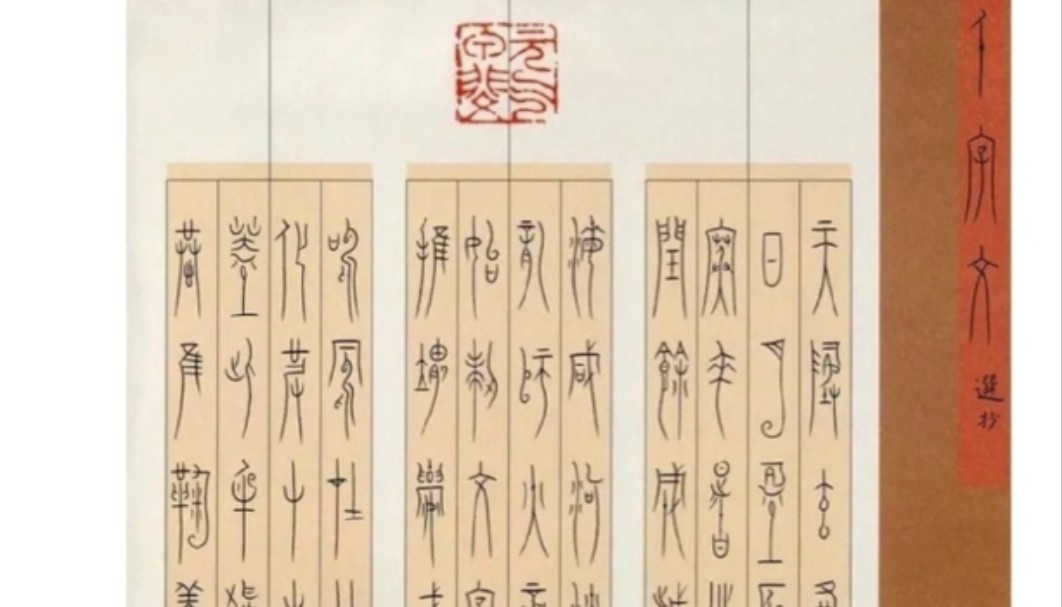 千字文
選抄
天地玄
日月盈
寒來暑
閏餘成
海鹹河
龍師火
始制文
推位讓
鳴鳳在
化被草
蓋此身
恭惟鞠